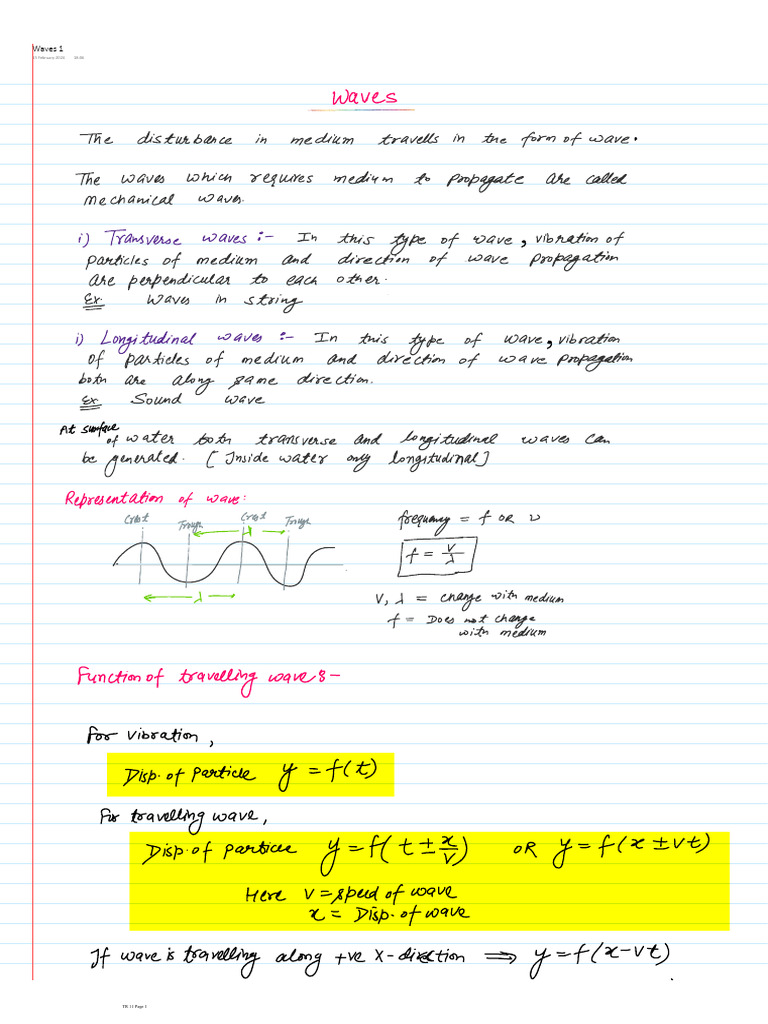 Waves 1
Waves
The disturbance in medium travells in the form of wave.
The waves which requires medium to propagate are called
mechanical waves.
i) Transverse waves :- In this type of wave, vibration of
particles of medium and direction of wave propagation
are perpendicular to each other.
Ex. Waves in string
i) Longitudinal waves :- In this type of wave, vibration
of particles of medium and direction of wave propagation
both are along same direction.
Ex Sound wave
At surface
of water both transverse and longitudinal waves can
be generated. [Inside water only longitudinal]
Representation of wave:
Crest Trough Crest Trough
λ
λ
frequency = f OR ν
f = v/λ
V, λ = change with medium
f = Does not change
with medium
Function of travelling wave :-
For vibration,
Disp. of Particle y = f(t)
For travelling wave,
Disp. of particle y = f(t ± x/v) OR y = f(x ± vt)
Here v = speed of wave
x = Disp. of wave
If wave is travelling along +ve X-direction ⇒ y = f(x-vt)
TR 11 Page 1